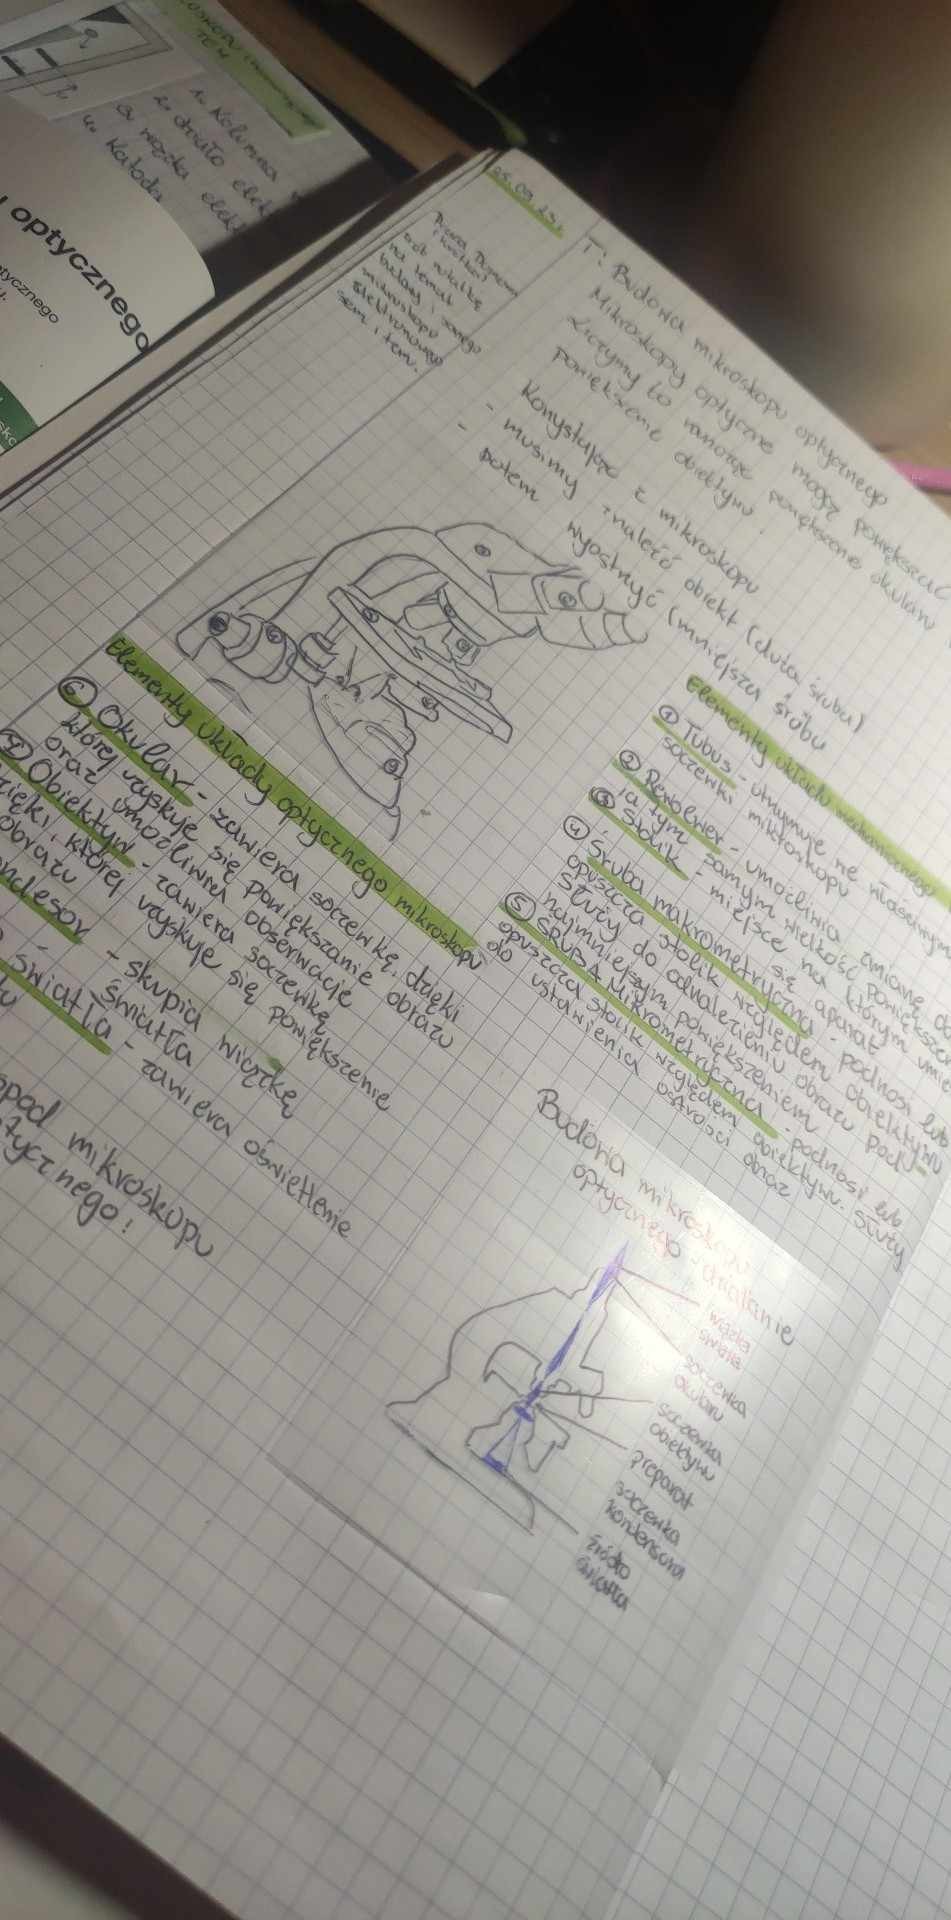 optycznego
tycznego
1. Kolumna
2. działo elek
3. wiązka elek
4. Katoda
25.09.25r.
Praca Domowa
zrób notatkę
na temat
budowy i samego
mikroskopu
elektronowego
sem i tem.
T: Budowa mikroskopu optycznego
Mikroskopy optyczne mogą powiększać
Liczymy to mnożąc powiększenie okularu
powiększenie obiektywu.
Konystając z mikroskopu
- musimy znaleźć obiekt (duża śruba)
- potem wyostrzyć (mniejsza śruba
Elementy układu mechanicznego
① Tubus - utrzymuje we właściwym
soczewki mikroskopu
② Rewolwer - umożliwia zmianę
a tym samym wielkość powiększen
③ Stolik - miejsce na którym umi
się aparat
④ Śruba makrometryczna - podnosi lub
opuszcza stolik względem obiektywu
Służy do odnalezieniu obrazu pod
najmniejszym powiększeniem
⑤ ŚRUBA Mikrometryczna - podnosi lub
opuszcza stolik względem obiektywu. Służy
do ustawienia ostrości obraz
Elementy układy optycznego mikroskopu
⑥ Okular - zawiera soczewkę, dzięki
której uzyskuje się powiększanie obrazu
oraz umożliwia obserwacje
Obiektyw - zawiera soczewkę
zięki, której uzyskuje się powiększenie
obrazu
ndesor - skupia wiązkę
światła
światła - zawiera oświetlenie
spod mikroskopu
tycznego!
Budowa mikroskopu
optycznego - działanie
wiązka
światła
soczewka
okularu
soczewka
obiektywu
preparat
soczewka
kondensora
źródło
światła